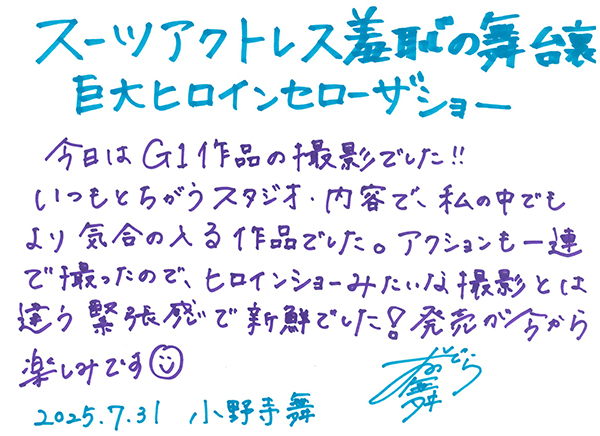 スーツアクトレス羞恥の舞台裏
巨大ヒロインセローザショー
今日はG1作品の撮影でした!!
いつもとちがうスタジオ・内容で、私の中でも
より気合の入る作品でした。アクションも一連
で撮ったので、ヒロインショーみたいな撮影とは
違う緊張感で新鮮でした!発売が今から
楽しみです
2025.7.31 小野寺舞